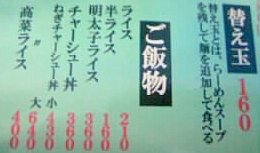 替え玉
160
替え玉とは、らーめんスープ
を残して麺を追加して食べる
ご飯物
ライス 210
半ライス 160
明太子ライス 360
チャーシュー丼 360
ねぎチャーシュー丼 小 430
〃 大 640
高菜ライス 400